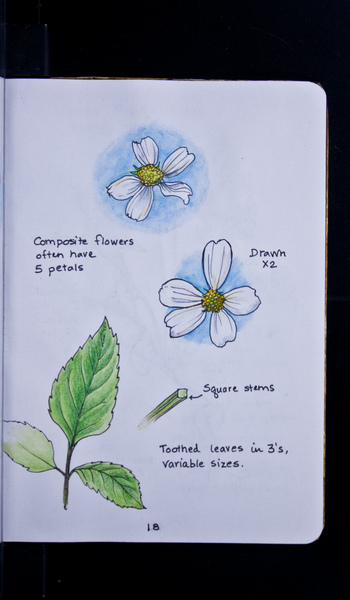 Composite flowers
often have
5 petals
Drawn
X2
Square stems
Toothed leaves in 3's,
variable sizes.
18